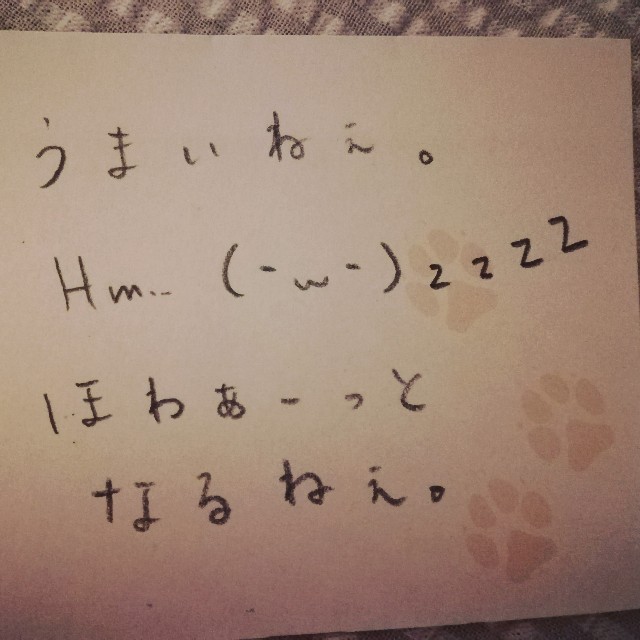 うまいねぇ。
Hm... (-ω-)zzzz
ほわぁーっと
なるねぇ。